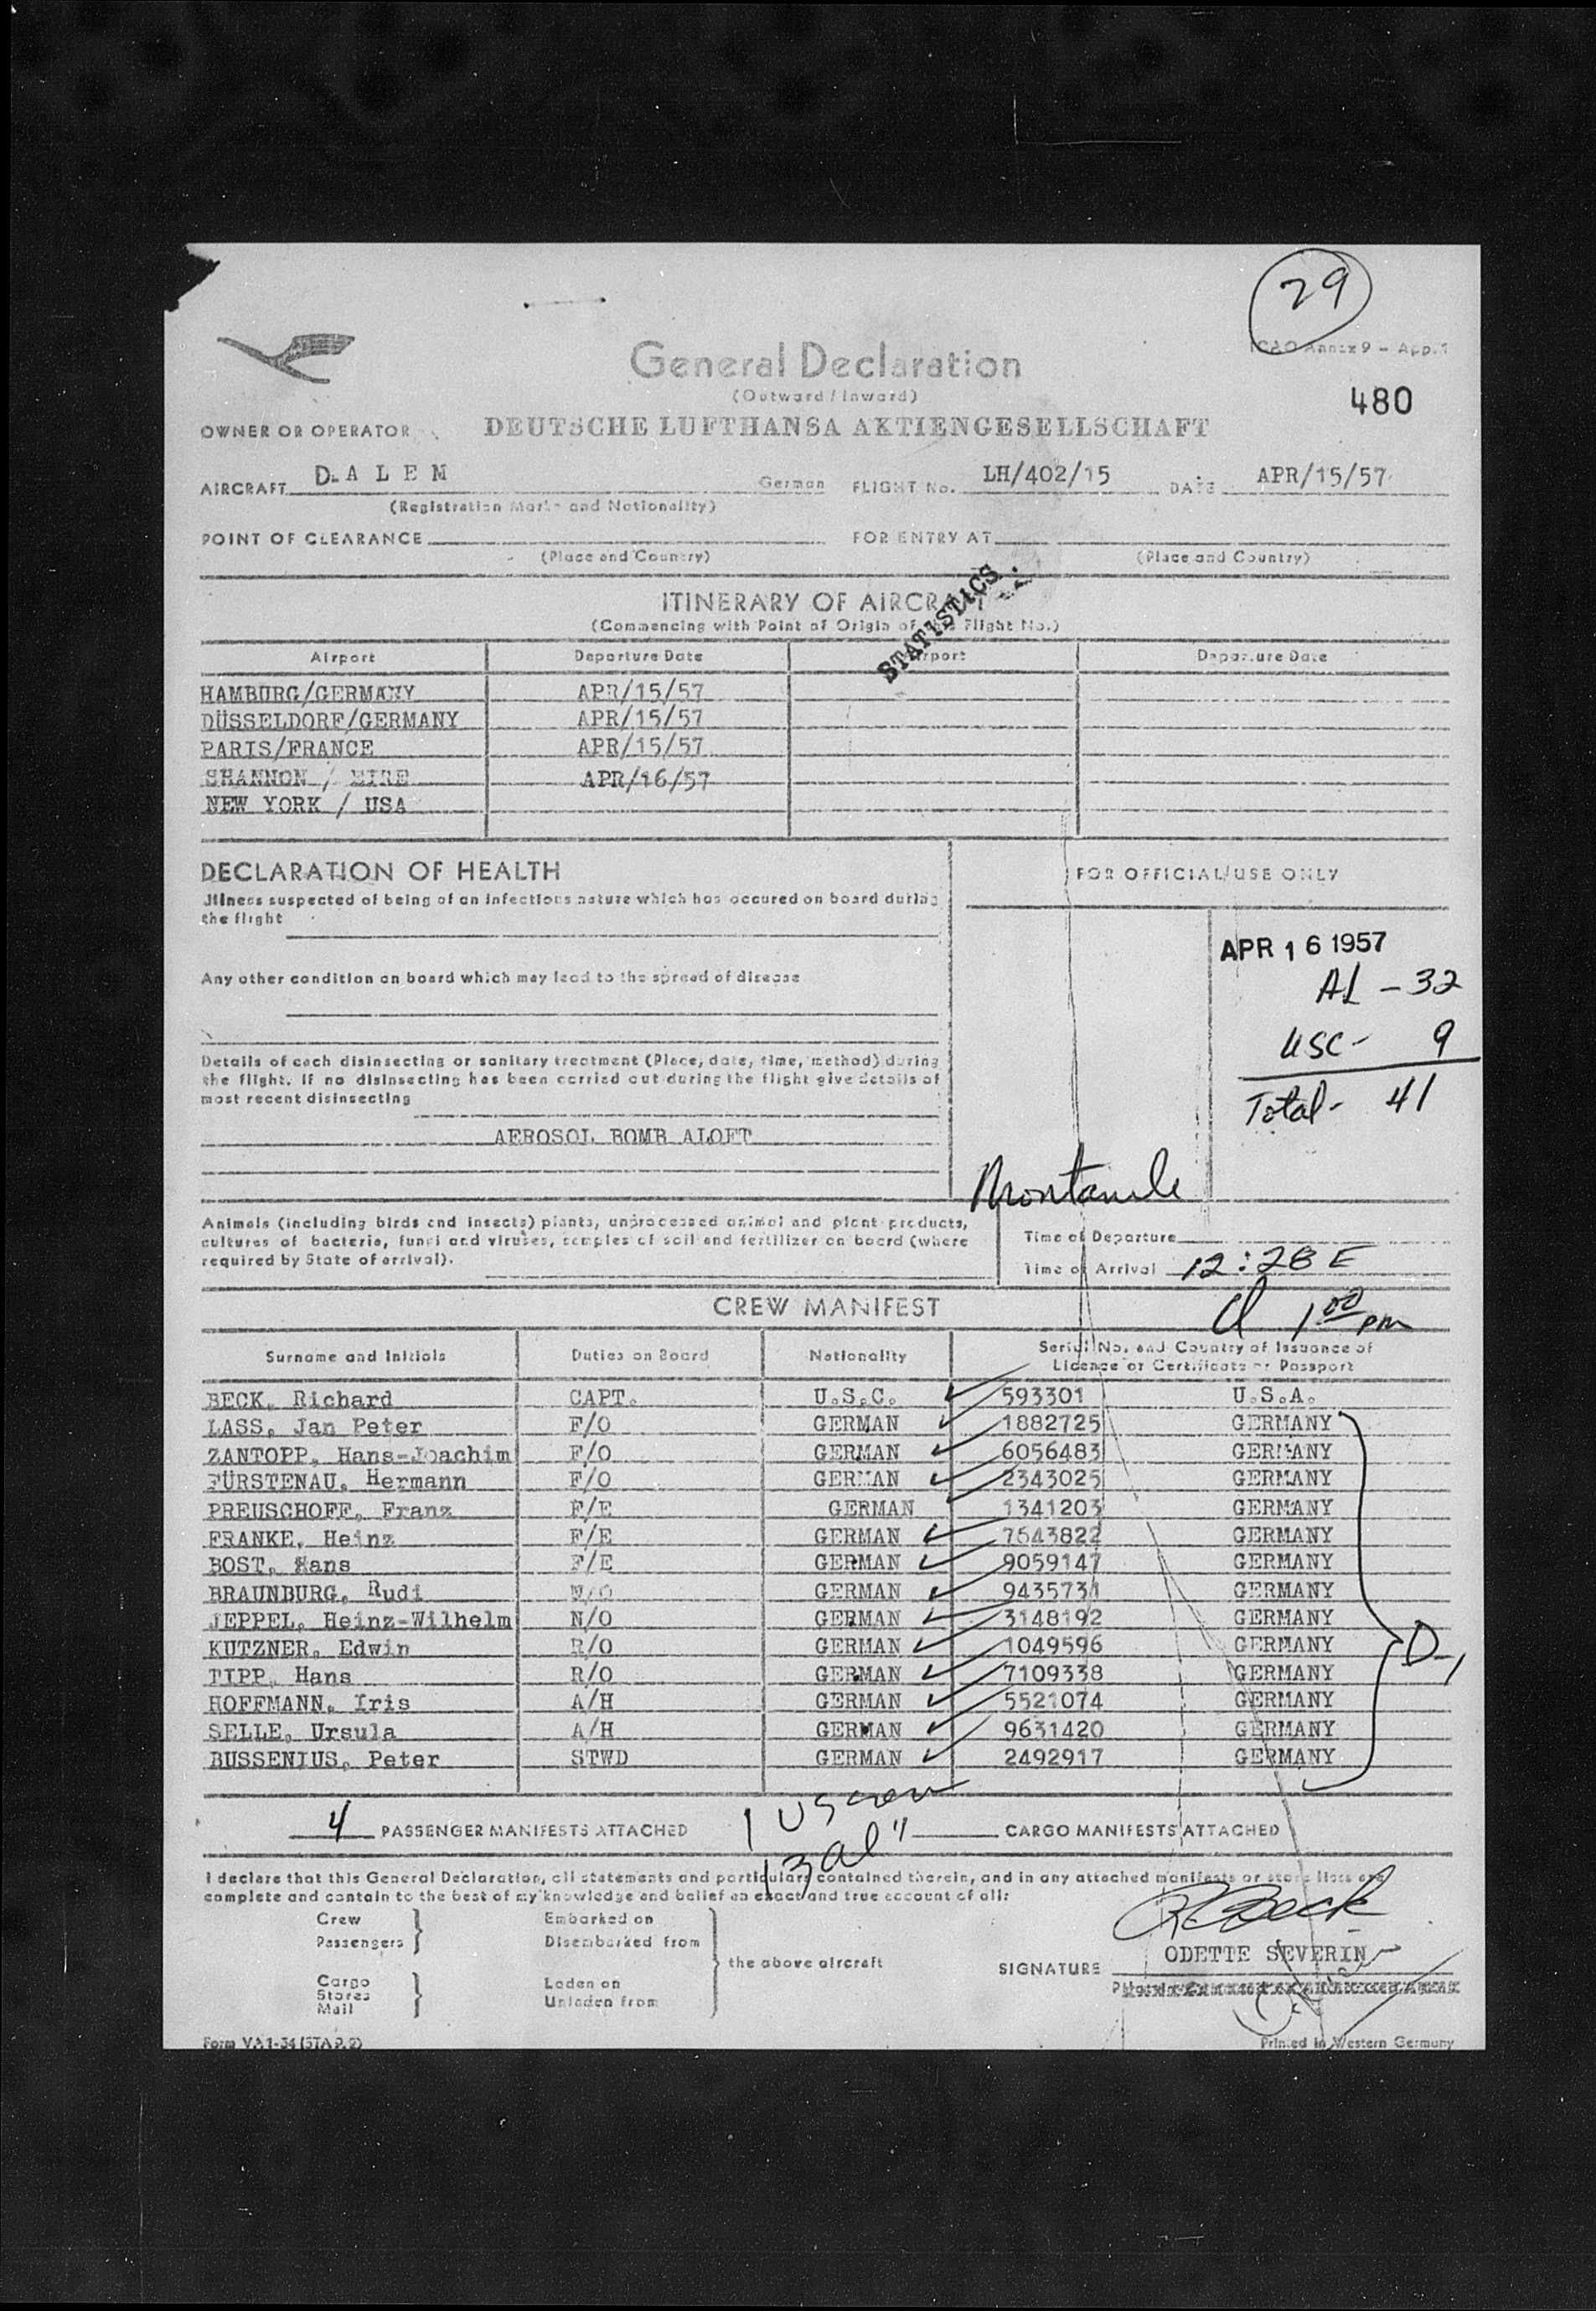 29
ICAO Annex 9 – App. 1
General Declaration
(Outward / Inward)
480
OWNER OR OPERATOR DEUTSCHE LUFTHANSA AKTIENGESELLSCHAFT
AIRCRAFT D-A L E M German FLIGHT No. LH/402/15 DATE APR/15/57
(Registration Marks and Nationality)
POINT OF CLEARANCE FOR ENTRY AT
(Place and Country) (Place and Country)
STATISTICS
ITINERARY OF AIRCRAFT
(Commencing with Point of Origin of the Flight No.)
Airport Departure Date Airport Departure Date
HAMBURG/GERMANY APR/15/57
DÜSSELDORF/GERMANY APR/15/57
PARIS/FRANCE APR/15/57
SHANNON / EIRE APR/16/57
NEW YORK / USA
DECLARATION OF HEALTH
Jllness suspected of being of an infectious nature which has occured on board during
the flight
Any other condition on board which may lead to the spread of disease
Details of each disinsecting or sanitary treatment (Place, date, time, method) during
the flight. If no disinsecting has been carried out during the flight give details of
most recent disinsecting
AEROSOL BOMB ALOFT
FOR OFFICIAL USE ONLY
APR 16 1957
AL – 32
USC – 9
Total – 41
Animals (including birds and insects) plants, unprocessed animal and plant products,
cultures of bacteria, fungi and viruses, samples of soil and fertilizer on board (where
required by State of arrival).
Time of Departure
Time of Arrival 12:28 E
1 00 pm
CREW MANIFEST
Surname and Initials Duties on Board Nationality Serial No. and Country of Issuance of
Licence or Certificate or Passport
BECK, Richard CAPT. U.S.C. 593301 U.S.A.
LASS, Jan Peter F/O GERMAN 1882725 GERMANY
ZANTOPP, Hans-Joachim F/O GERMAN 6056483 GERMANY
FÜRSTENAU, Hermann F/O GERMAN 2343025 GERMANY
PREUSCHOFF, Franz F/E GERMAN 1341203 GERMANY
FRANKE, Heinz F/E GERMAN 7643822 GERMANY
BOST, Hans F/E GERMAN 9059147 GERMANY
BRAUNBURG, Rudi N/O GERMAN 9435731 GERMANY
JEPPEL, Heinz-Wilhelm N/O GERMAN 3148192 GERMANY
KUTZNER, Edwin R/O GERMAN 1049596 GERMANY
TIPP, Hans R/O GERMAN 7109338 GERMANY
HOFFMANN, Iris A/H GERMAN 5521074 GERMANY
SELLE, Ursula A/H GERMAN 9631420 GERMANY
BUSSENIUS, Peter STWD GERMAN 2492917 GERMANY
D-1
1 US crew
13 al "
4 PASSENGER MANIFESTS ATTACHED CARGO MANIFESTS ATTACHED
I declare that this General Declaration, all statements and particulars contained therein, and in any attached manifests or store lists are
complete and contain to the best of my knowledge and belief an exact and true account of all:
Crew Embarked on
Passengers Disembarked from
the above aircraft
Cargo Laden on
Stores
Mail Unladen from
R Beck
SIGNATURE ODETTE SEVERIN
Form VA 1-34 (STA 9.2) Printed in Western Germany